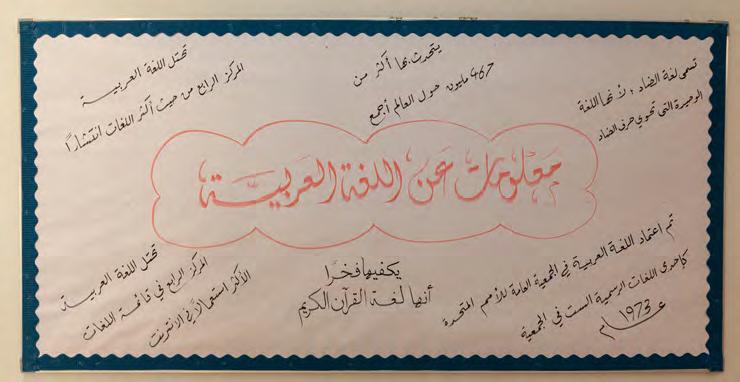 تسمى لغة الضاد ; لأنها اللغة
الوحيدة التي تحوي حرف الضاد
يتحدث بها أكثر من
467 مليون حول العالم أجمع
تحتل اللغة العربية
المركز الرابع من حيث أكثر اللغات انتشارًا
معلومات عن اللغة العربية
تم اعتماد اللغة العربية في الجمعية العامة للأمم المتحدة
كإحدى اللغات الرسمية الست في الجمعية
عام 1973
يكفيها فخرًا
أنها لغة القرآن الكريم
تحتل اللغة العربية
المركز الرابع في قائمة اللغات
الأكثر استعمالًا في الانترنت